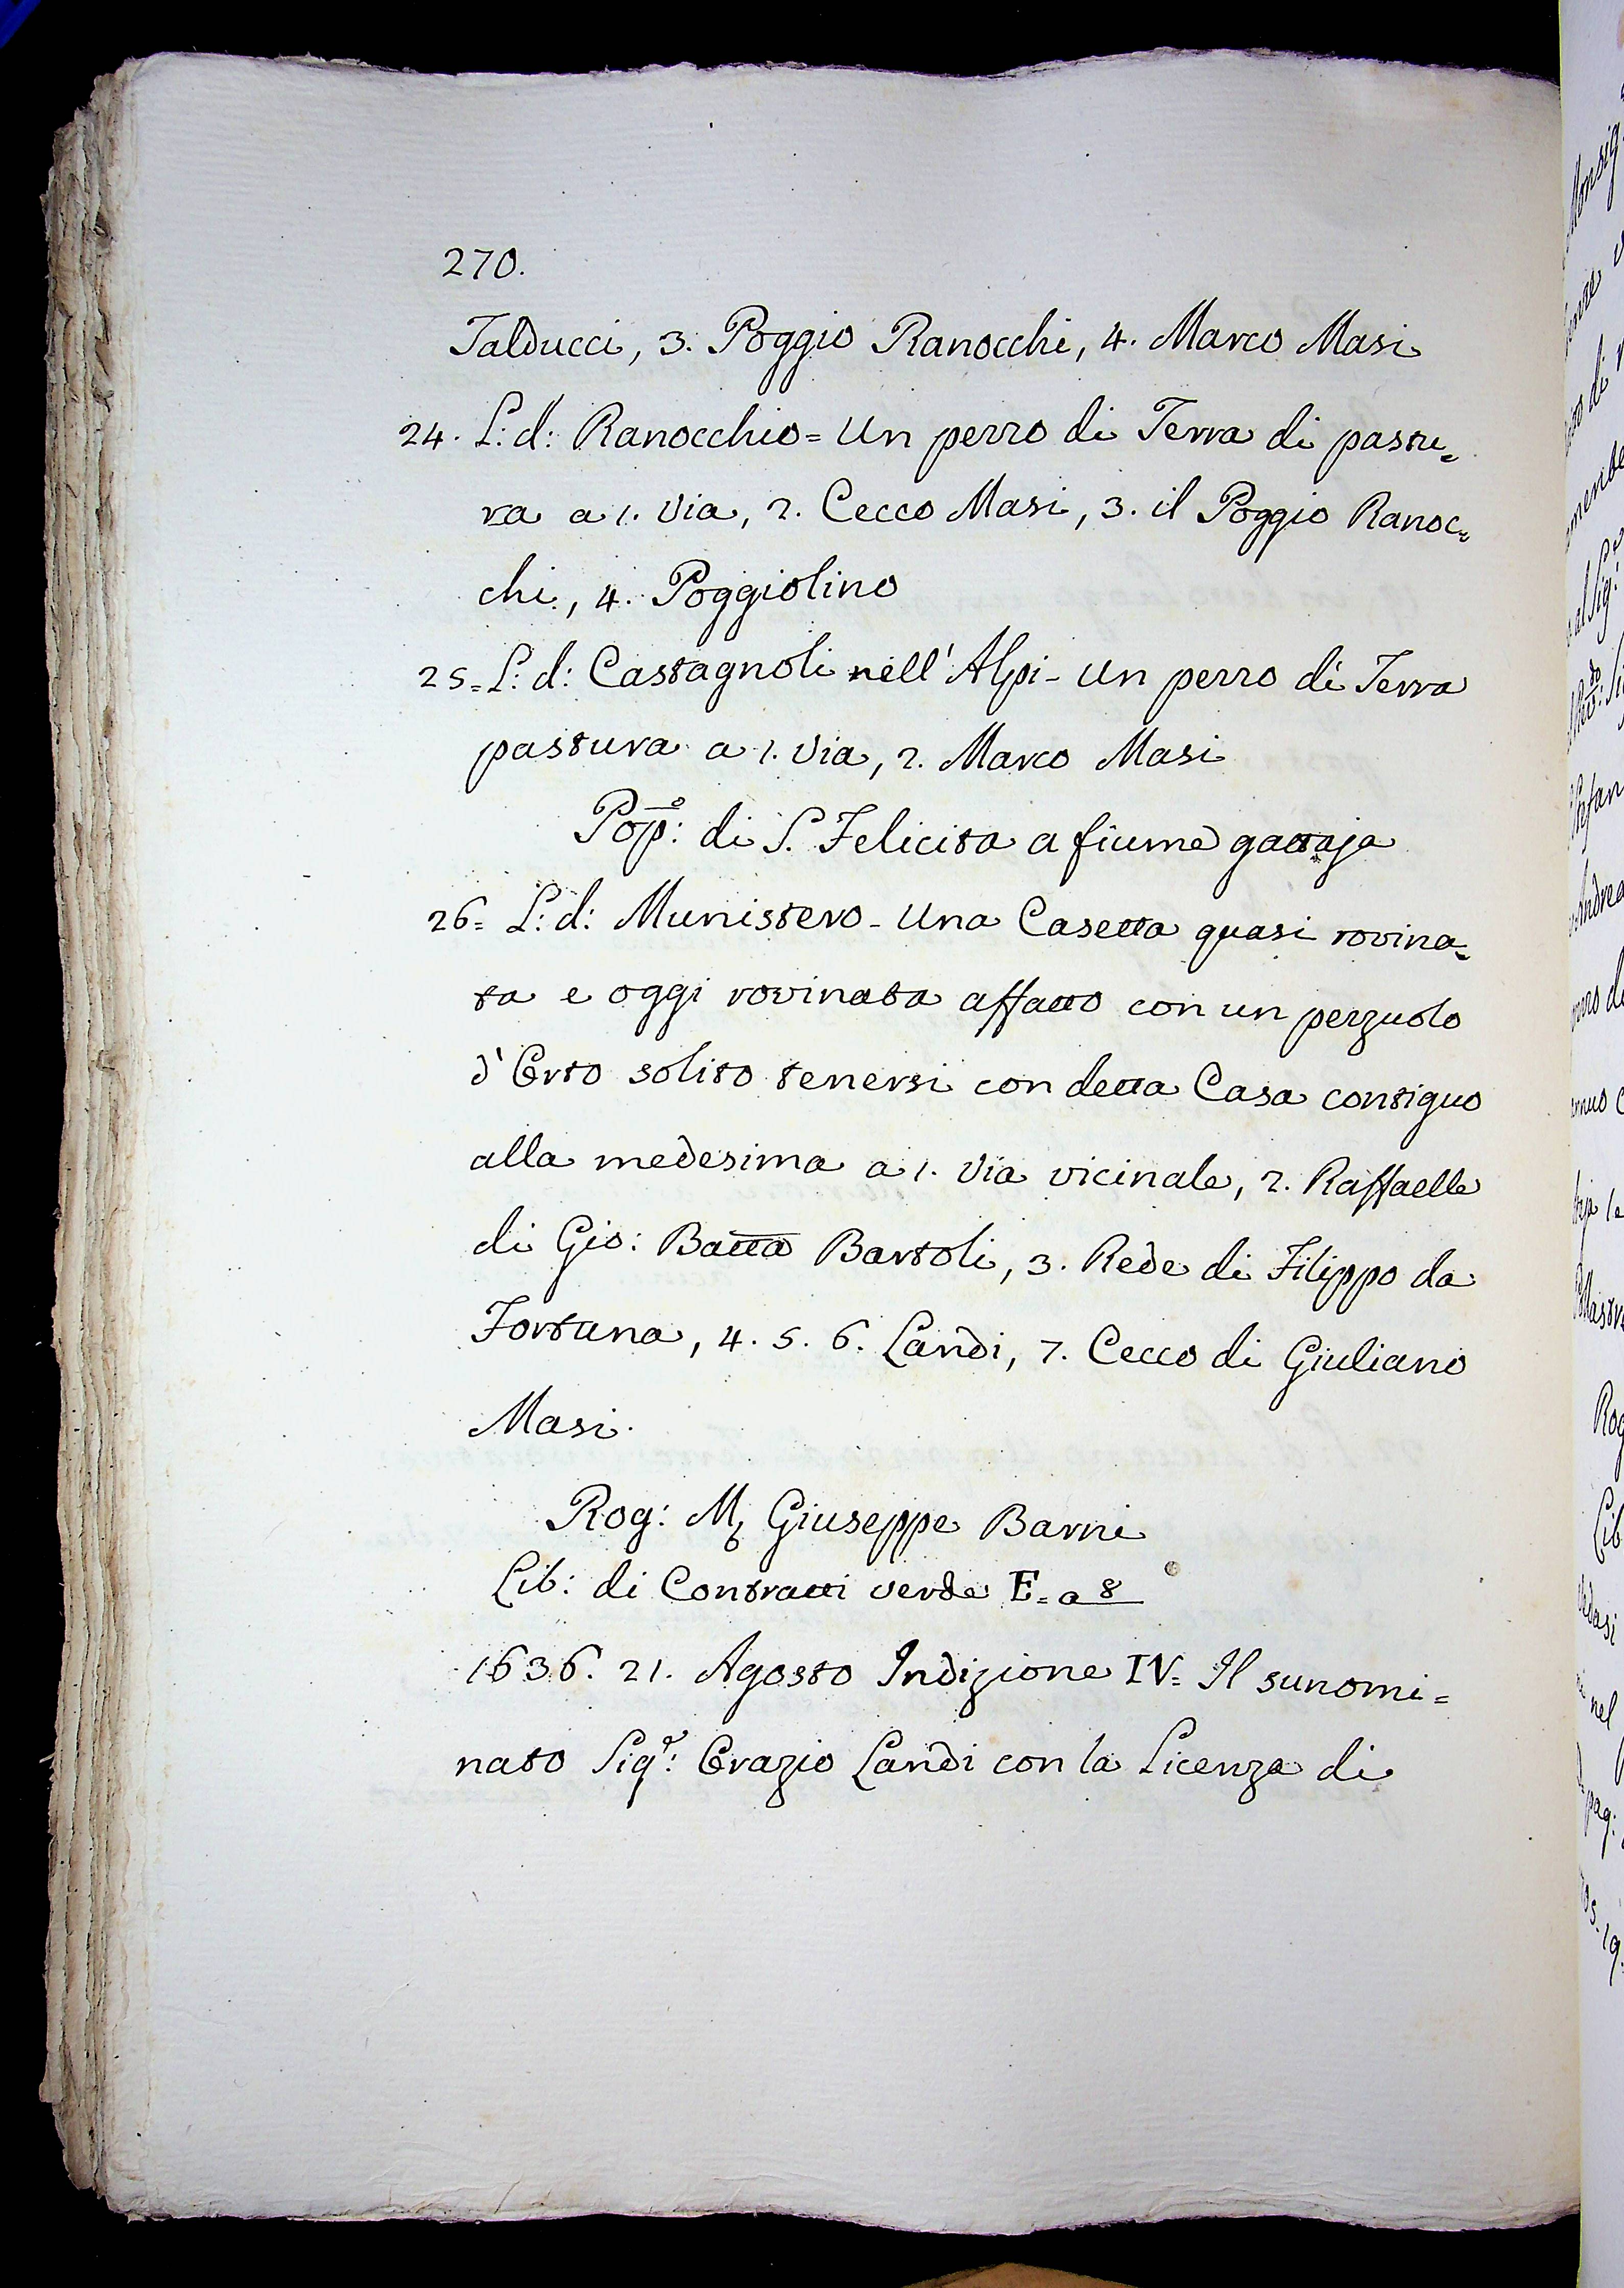 270.
Talducci, 3. Poggio Ranocchi, 4. Marco Masi
24. L: d: Ranocchio = Un pezzo di Terra di pastu=
ra a 1. Via, 2. Cecco Masi, 3. il Poggio Ranoc=
chi, 4. Poggiolino
25 = L: d: Castagnoli nell' Alpi - Un pezzo di Terra
pastura a 1. Via, 2. Marco Masi
Pop̄o: di S. Felicita a fiume gattaja
26 = L: d: Munistero - Una Casetta quasi rovina=
ta e oggi rovinata affatto con un pezzuolo
d'Orto solito tenersi con detta Casa contiguo
alla medesima a 1. Via vicinale, 2. Raffaello
di Gio: Batta Bartoli, 3. Rede di Filippo da
Fortuna, 4. 5. 6. Landi, 7. Cecco di Giuliano
Masi.
Rog: M, Giuseppe Barni
Lib: di Contratti verde E = a 8
1636. 21. Agosto Indizione IV = Il sunomi=
nato Sigr: Orazio Landi con la Licenza di